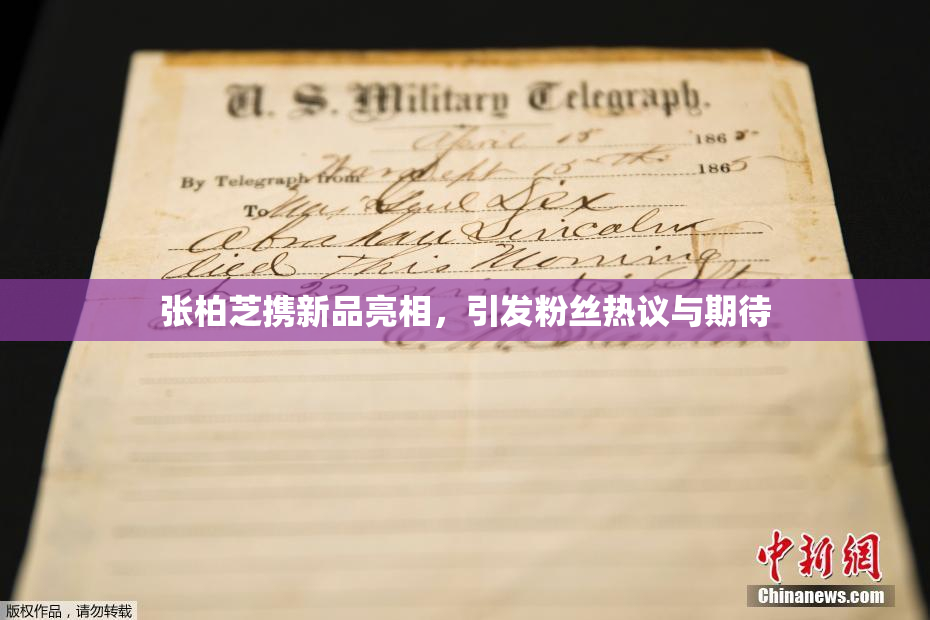 U. S. Military Telegraph.
April 15 1865
By Telegraph from War Dept 15th 1865
To Maj Genl Dix
Abraham Lincoln
died This Morning
at 22 minutes after
张柏芝携新品亮相，引发粉丝热议与期待
E. M. Stanton
中新网
Chinanews.com
版权作品，请勿转载